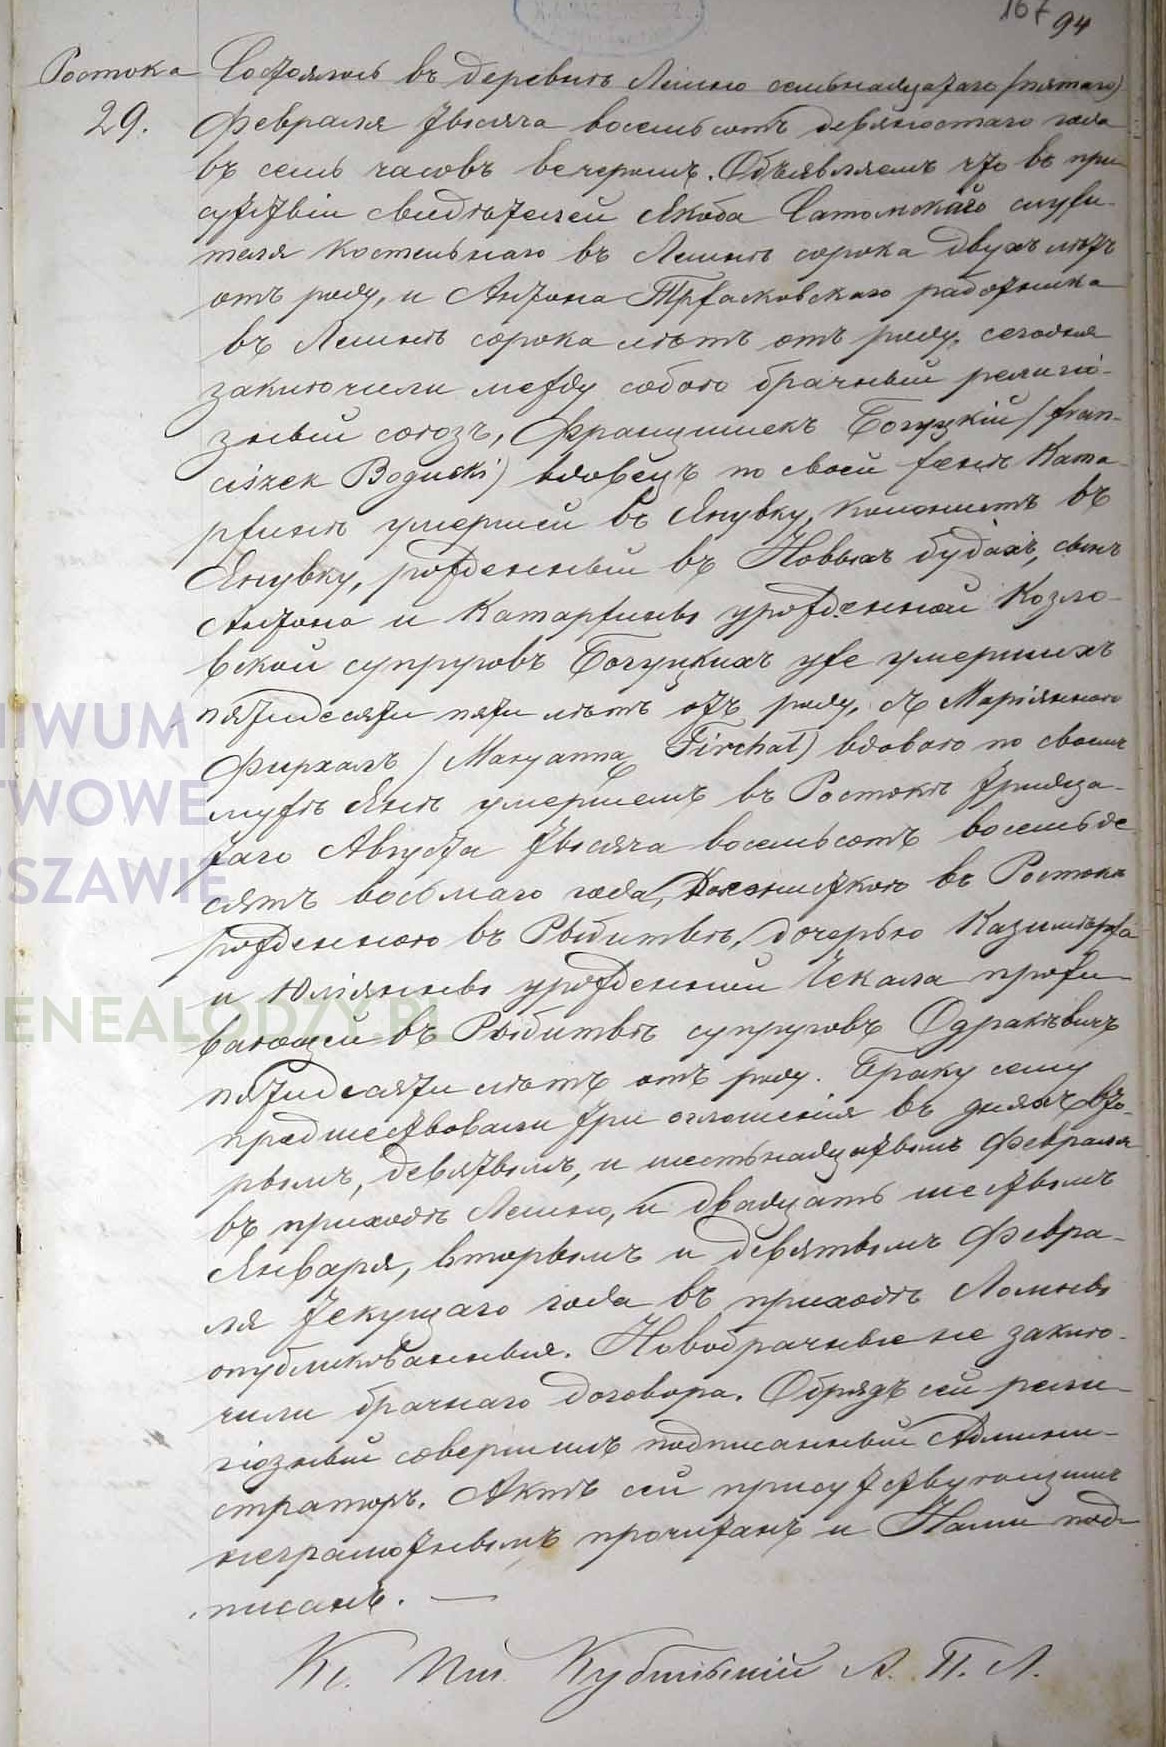 167 94
Ростока
29.
Состоялось въ деревнѣ Лешно семьнадцатаго /пятаго)
Февраля тысяча восемьсотъ девяностаго года
въ семь часовъ вечеромъ. Объявляемъ что въ при-
сутствіи свидѣтелей Якоба Сатомскаго служи-
теля костельнаго въ Лешнѣ сорока двухъ лѣтъ
отъ роду, и Антона Тржасковскаго работника
въ Лешнѣ сорока лѣтъ отъ роду, сегодня
заключили между собою брачный религіо-
зный союзъ, Францишекъ Богуцкій /Fran-
ciszek Bogucki) вдовецъ по своей женѣ Ката-
ржинѣ умершей въ Янувку, колонистъ въ
Янувку, рожденный въ Новыхъ будахъ, сынъ
Антона и Катаржины урожденной Козло-
вской супруговъ Богуцкихъ уже умершихъ
пятидесяти пяти лѣтъ отъ роду, съ Маріянною
Фирхалъ / Maryanną Firchał) вдовою по своемъ
мужѣ Янѣ умершемъ въ Ростокѣ тридца-
таго Августа тысяча восемьсотъ восемьде
сятъ восьмаго года, колонисткою въ Ростока
рожденною въ Рыбитвѣ, дочерью Казимѣржа
и Юліянны урожденной Чекала прожи-
вающей въ Рыбитвѣ супруговъ Одракѣвичъ
пятидесяти лѣтъ отъ роду. Браку сему
предшествовали три оглошенія въ дняхъ вто-
рымъ, девятымъ, и шестьнадцатымъ Февраля
въ приходѣ Лешно, и двадцать шестымъ
Января, вторымъ и девятымъ Февра-
ля текущаго года въ приходѣ Ломны
опубликованныя. Новобрачные не заклю-
чили брачнаго договора. Обрядъ сей рели-
гіозный совершилъ подписанный Админи-
страторъ. Актъ сей присутствующимъ
неграмотнымъ прочитанъ и Нами под-
писанъ. —
Кс. А. П. Л.
ARCHIWUM
PAŃSTWOWE
W WARSZAWIE
GENEALODZY.PL